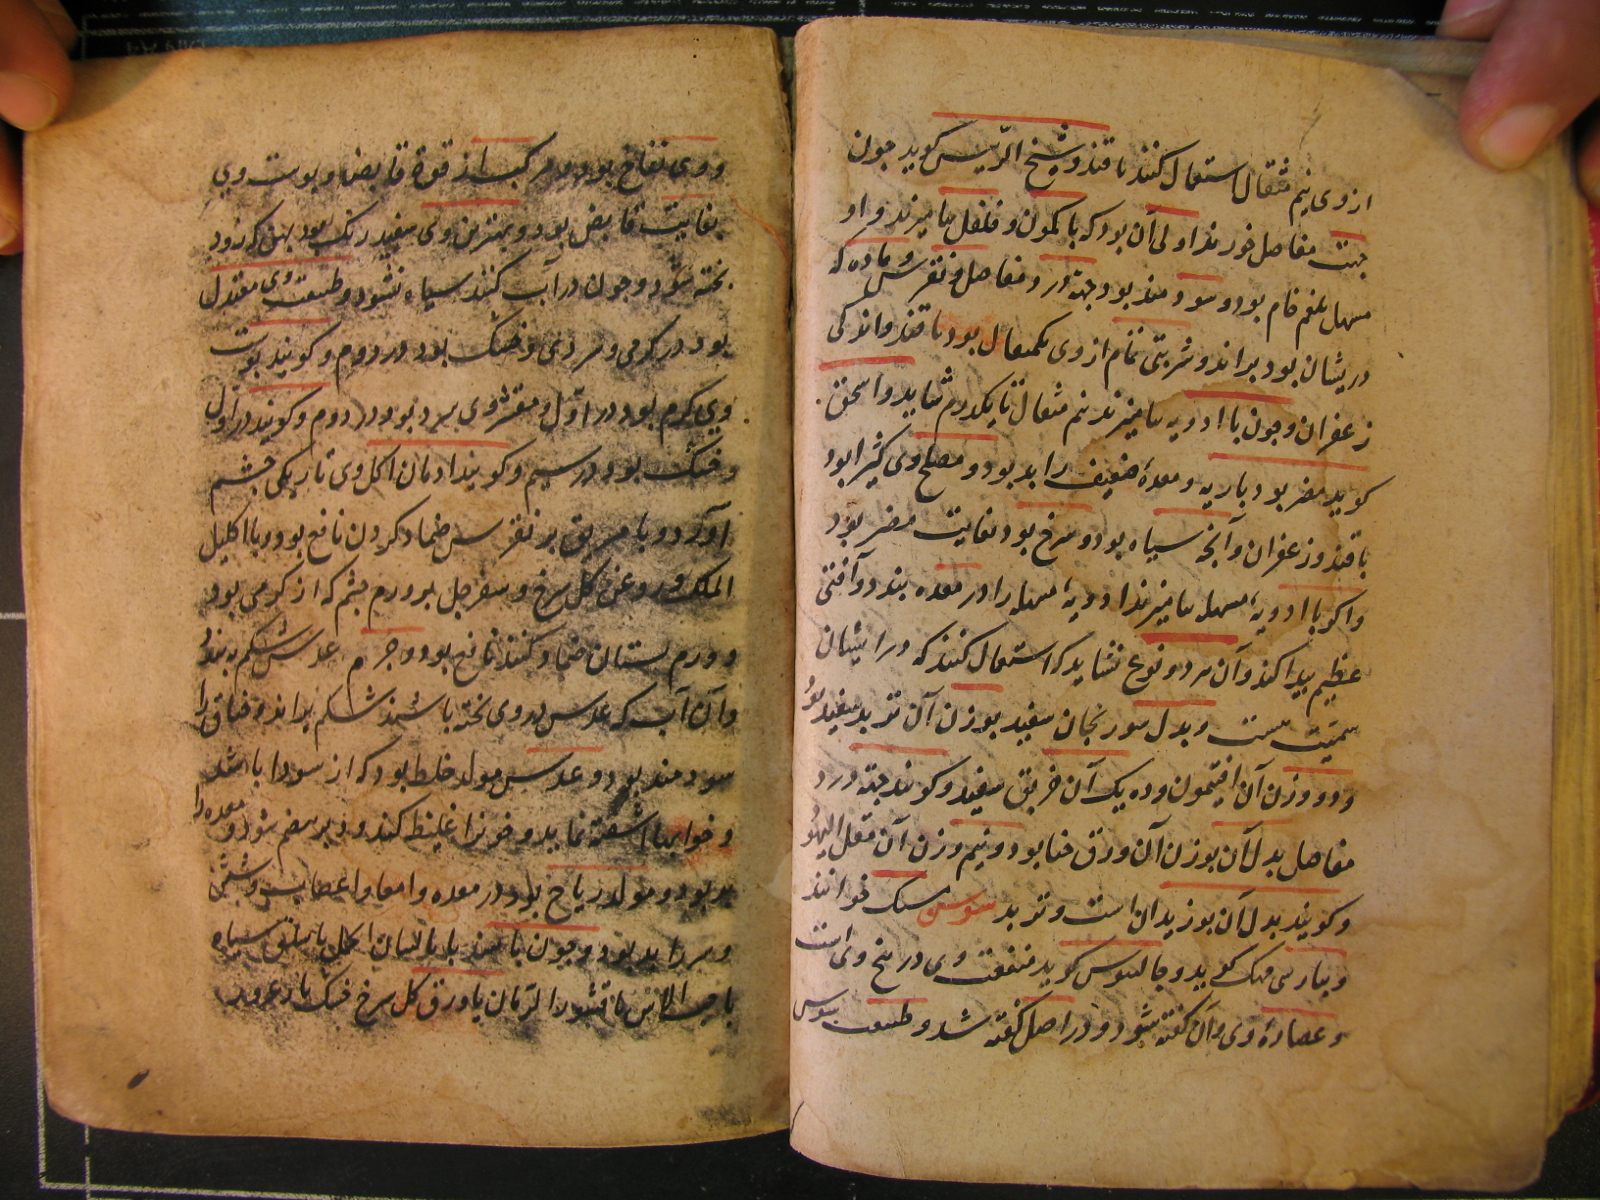 از وی نیم مثقال استعمال کنند با قند و شیخ الرئیس کوید جون
جهت مفاصل خورند اولی آن بود که با کمون و فلفل بیامیزند و او
مسهل بلغم خام بود و سودمند بود جهة درد مفاصل و نقرس و ماده که
دریشان بود براند و شربتی تمام از وی یکمثقال بود با قند و اندکی
زعفران و جون با ادویه بیامیزند نیم مثقال تا یکدرم شاید و اسحق
کوید مضر بود باریه و معدهٔ ضعیف را بد بود و مصلح وی کثیرا بود
با قند و زعفران و آنجه سیاه بود و سرخ بود بغایت مضر بود
و اکر با ادویهٔ مسهله بیامیزند ادویهٔ مسهله را در معده بندد و آفتی
عظیم پیدا کند و آن هر دو نوع نشاید که استعمال کنند که در ایشان
سمیت هست و بدل سورنجان سفید بوزن آن تربد سفید بود
و دو وزن آن افتیمون و ده یک آن خربق سفید و کویند جهة درد
مفاصل بدل آن بوزن آن ورق حنا بود و نیم وزن آن مقل الیهود
و کویند بدل آن بوزیدان است و تربد سوس مسک خوانند
و بپارسی مهک کویند و جالینوس کوید منفعت وی در بیخ وی است
و عصارهٔ وی و آن کفته شود و در اصل کفته شد و طبیعت سوس
و وی نفاخ بود و مرکب از قوة قابض و پوست وی
بغایت قابض بود و بهترین وی سفید رنک بود پهن که زود
پخته شود و جون در آب کنند سیاه نشود و طبیعت وی معتدل
بود در کرمی و سردی و خشک بود در دوم و کویند پوست
وی کرم بود در اول و مقشر وی سرد بود در دوم و کویند در اول
و خشک بود در سیم و کویند ادمان اکل وی تاریکی جشم
آورد و با سویق بر نقرس ضماد کردن نافع بود و با اکلیل
الملک و روغن کل سرخ و سفرجل بر ورم جشم که از کرمی بود
و ورم پستان ضماد کنند نافع بود و جرم عدس شکم ببندد
و آن آب که عدس در وی پخته باشند شکم براند و خناق را
سودمند بود و عدس مولد خلط بود که از سودا باشد
و خوابها آشفته نماید و خون را غلیظ کند و دیر هضم شود و معده را
بد بود و مولد ریاح بود در معده و امعا و اعصاب و شش
و سر را بد بود و جون باشد با بالسان الحمل یا سلق سیاه
یا حب الآس یا قشور الرمان یا ورق کل سرخ خشک یا زعرور